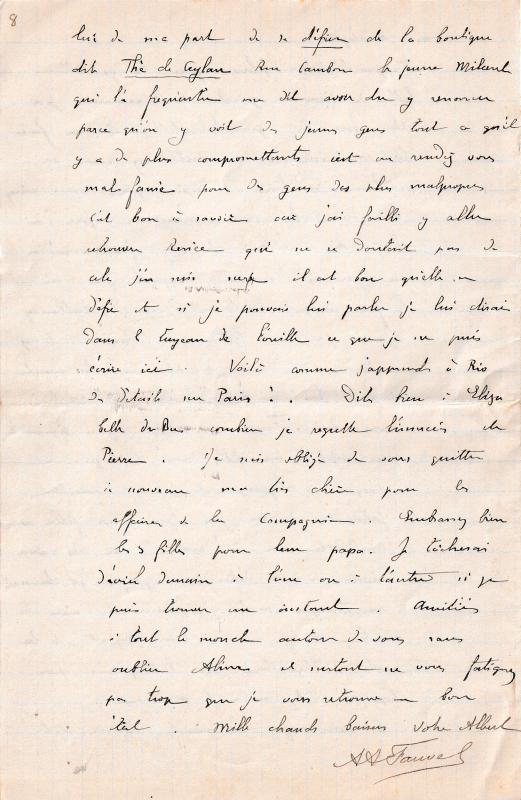 8
lui de ma part de se défier de la boutique
dite Thé de Ceylan Rue Cambon le jeune
qui l'a fréquentée me dit avoir dû y renoncer
parce qu'on y voit des jeunes gens tout ce qu'il
y a de plus compromettants c'est un rendez vous
mal famé pour des gens des plus malpropres
C'est bon à savoir car j'ai failli y aller
retrouver qui ne se doutait pas de
cela j'en suis il est bon qu'elle se
défie et si je pouvais lui parler je lui dirais
dans le tuyau de l'oreille ce que je ne puis
écrire ici. Voilà comme j'apprends à Rio
des détails sur Paris !. Dites bien à
combien je regrette l'insuccès de
Pierre. Je suis obligé de vous quitter
à nouveau ma très chère pour les
affaires de la Compagnie. Embrassez bien
les 3 filles pour leur papa. Je tâcherai
d'écrire demain à l'une ou à l'autre si je
puis trouver un instant. Amitiés
à tout le monde autour de vous sans
oublier Aline et surtout ne vous fatiguez
pas trop que je vous retrouve en bon
état. Mille chauds baisers votre Albert
AA Fauvel